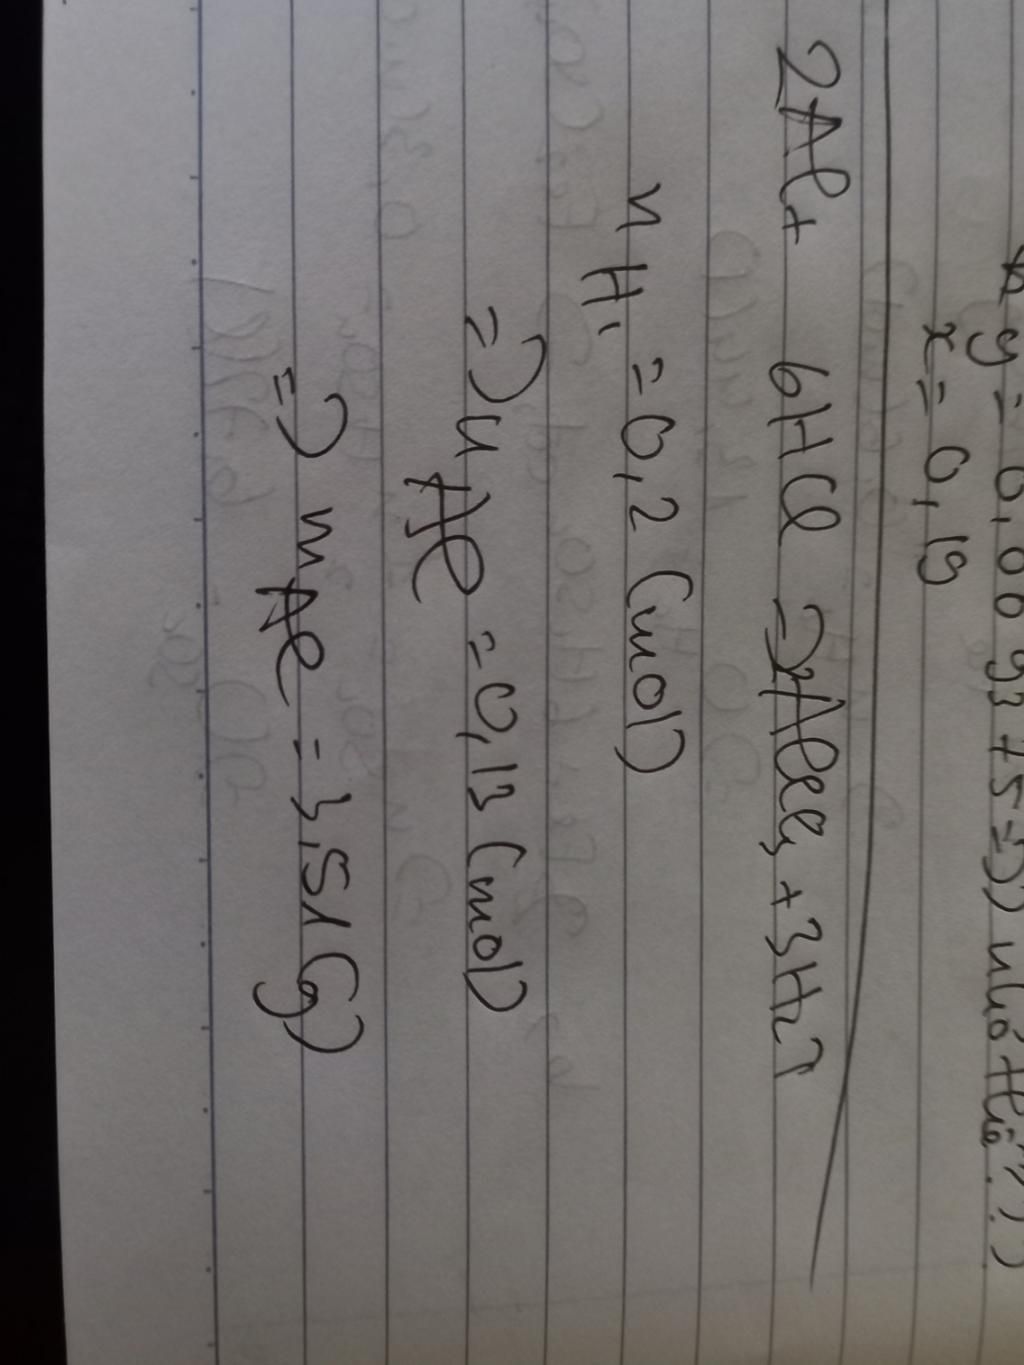 y = 0,06 93 75 =>) nhỏ thế??)
x = 0,19
2Al + 6HCl => 2AlCl3 + 3H2↑
n H2 = 0,2 (mol)
=> n Al = 0,13 (mol)
=> m Al = 3,51 (g)